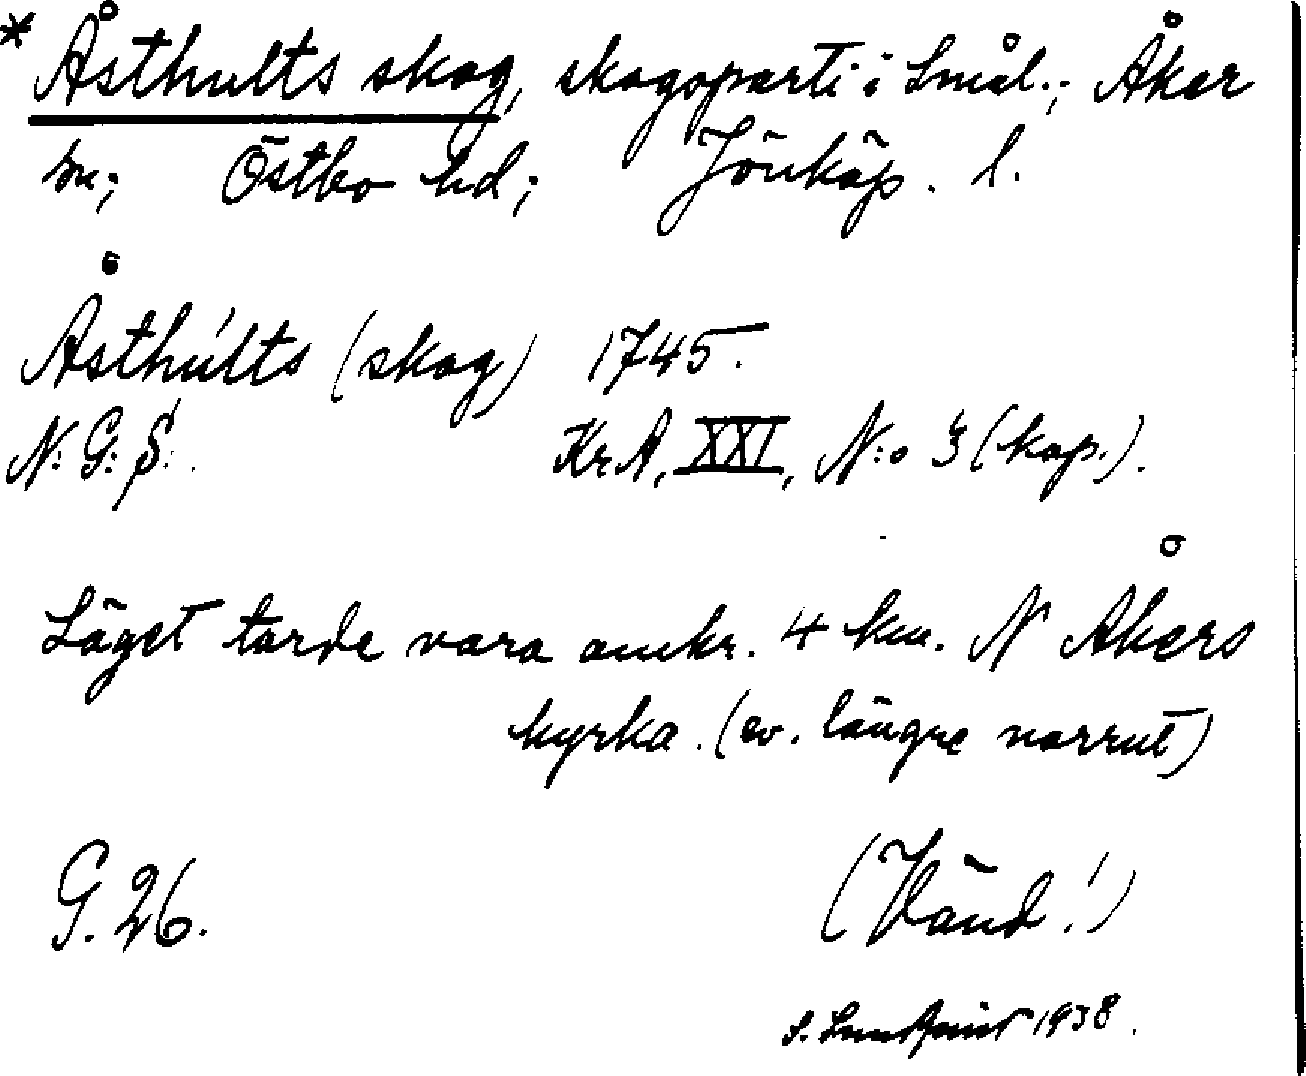 * Åsthults skog, skogsparti i Smål.; Åker
sn; Östbo hd; Jönköp. l.
Åsthúlts (skog) 1745.
N: G: S:.
Kr.A, XXI, N:o 3 (kop.).
Läget torde vara omkr. 4 km. N Åkers
kyrka. (ev. längre norrut)
G. 26.
(Vänd!)
S. 1938.